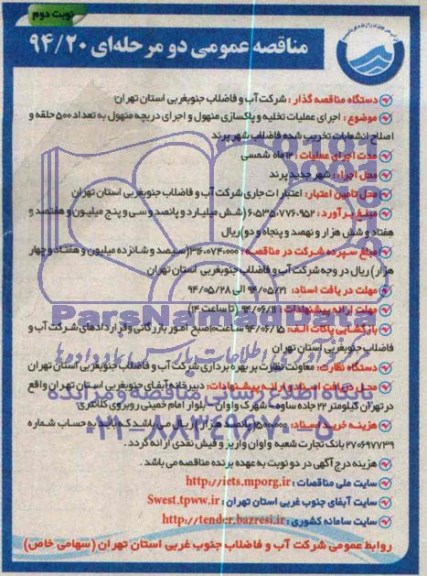 نوبت دوم
مناقصه عمومی دو مرحله‌ای ۹۴/۲۰
دستگاه مناقصه گذار : شرکت آب و فاضلاب جنوبغربی استان تهران
موضوع : اجرای عملیات تخلیه و پاکسازی منهول و اجرای دریچه منهول به تعداد ۵۰۰ حلقه و
اصلاح انشعابات تخریب شده فاضلاب شهر پرند
مدت اجرای عملیات : ۱۲ ماه شمسی
محل اجرا : شهر جدید پرند
محل تأمین اعتبار: اعتبارات جاری شرکت آب و فاضلاب جنوبغربی استان تهران
مبلغ برآورد : ۶،۵۳۵،۷۷۶،۹۵۲ (شش میلیارد و پانصد و سی و پنج میلیون و هفتصد و
هفتاد و شش هزار و نهصد و پنجاه و دو) ریال
مبلغ سپرده شرکت در مناقصه : ۳۱۶،۰۷۴،۰۰۰ (سیصد و شانزده میلیون و هفتاد و چهار
هزار) ریال در وجه شرکت آب و فاضلاب جنوبغربی استان تهران
مهلت دریافت اسناد: ۹۴/۰۵/۲۱ الی ۹۴/۰۵/۲۸
مهلت ارائه پیشنهادات : ۹۴/۰۶/۱۱ (تا ساعت ۱۴)
بازگشایی پاکات الف: ۹۴/۰۶/۱۵ صبح امور بازرگانی و قراردادهای شرکت آب و
فاضلاب جنوبغربی استان تهران
دستگاه نظارت: معاونت نظارت بر بهره برداری شرکت آب و فاضلاب جنوبغربی استان تهران
محل دریافت اسناد و ارائه پیشنهادات: دبیرخانه آبفای جنوبغربی استان تهران واقع
در تهران کیلومتر ۲۲ جاده ساوه - شهرک واوان - بلوار امام خمینی روبروی کلانتری
هزینه خرید اسناد: ۵۰۰،۰۰۰ (پانصد هزار) ریال می باشد که باید به حساب شماره
۲۷۰۶۹۷۷۳۹ بانک تجارت شعبه واوان واریز و فیش نقدی ارائه گردد.
هزینه درج آگهی در دو نوبت به عهده برنده مناقصه می باشد.
سایت ملی مناقصات : http://iets.mporg.ir
سایت آبفای جنوب غربی استان تهران : Swest.tpww.ir
سایت سامانه کشوری : http://tender.bazresi.ir
روابط عمومی شرکت آب و فاضلاب جنوب غربی استان تهران (سهامی خاص)
ParsNamadData
پایگاه اطلاع رسانی مناقصه و مزایده
۰۲۱-۸۸۳۴۹۶۷۰-۵